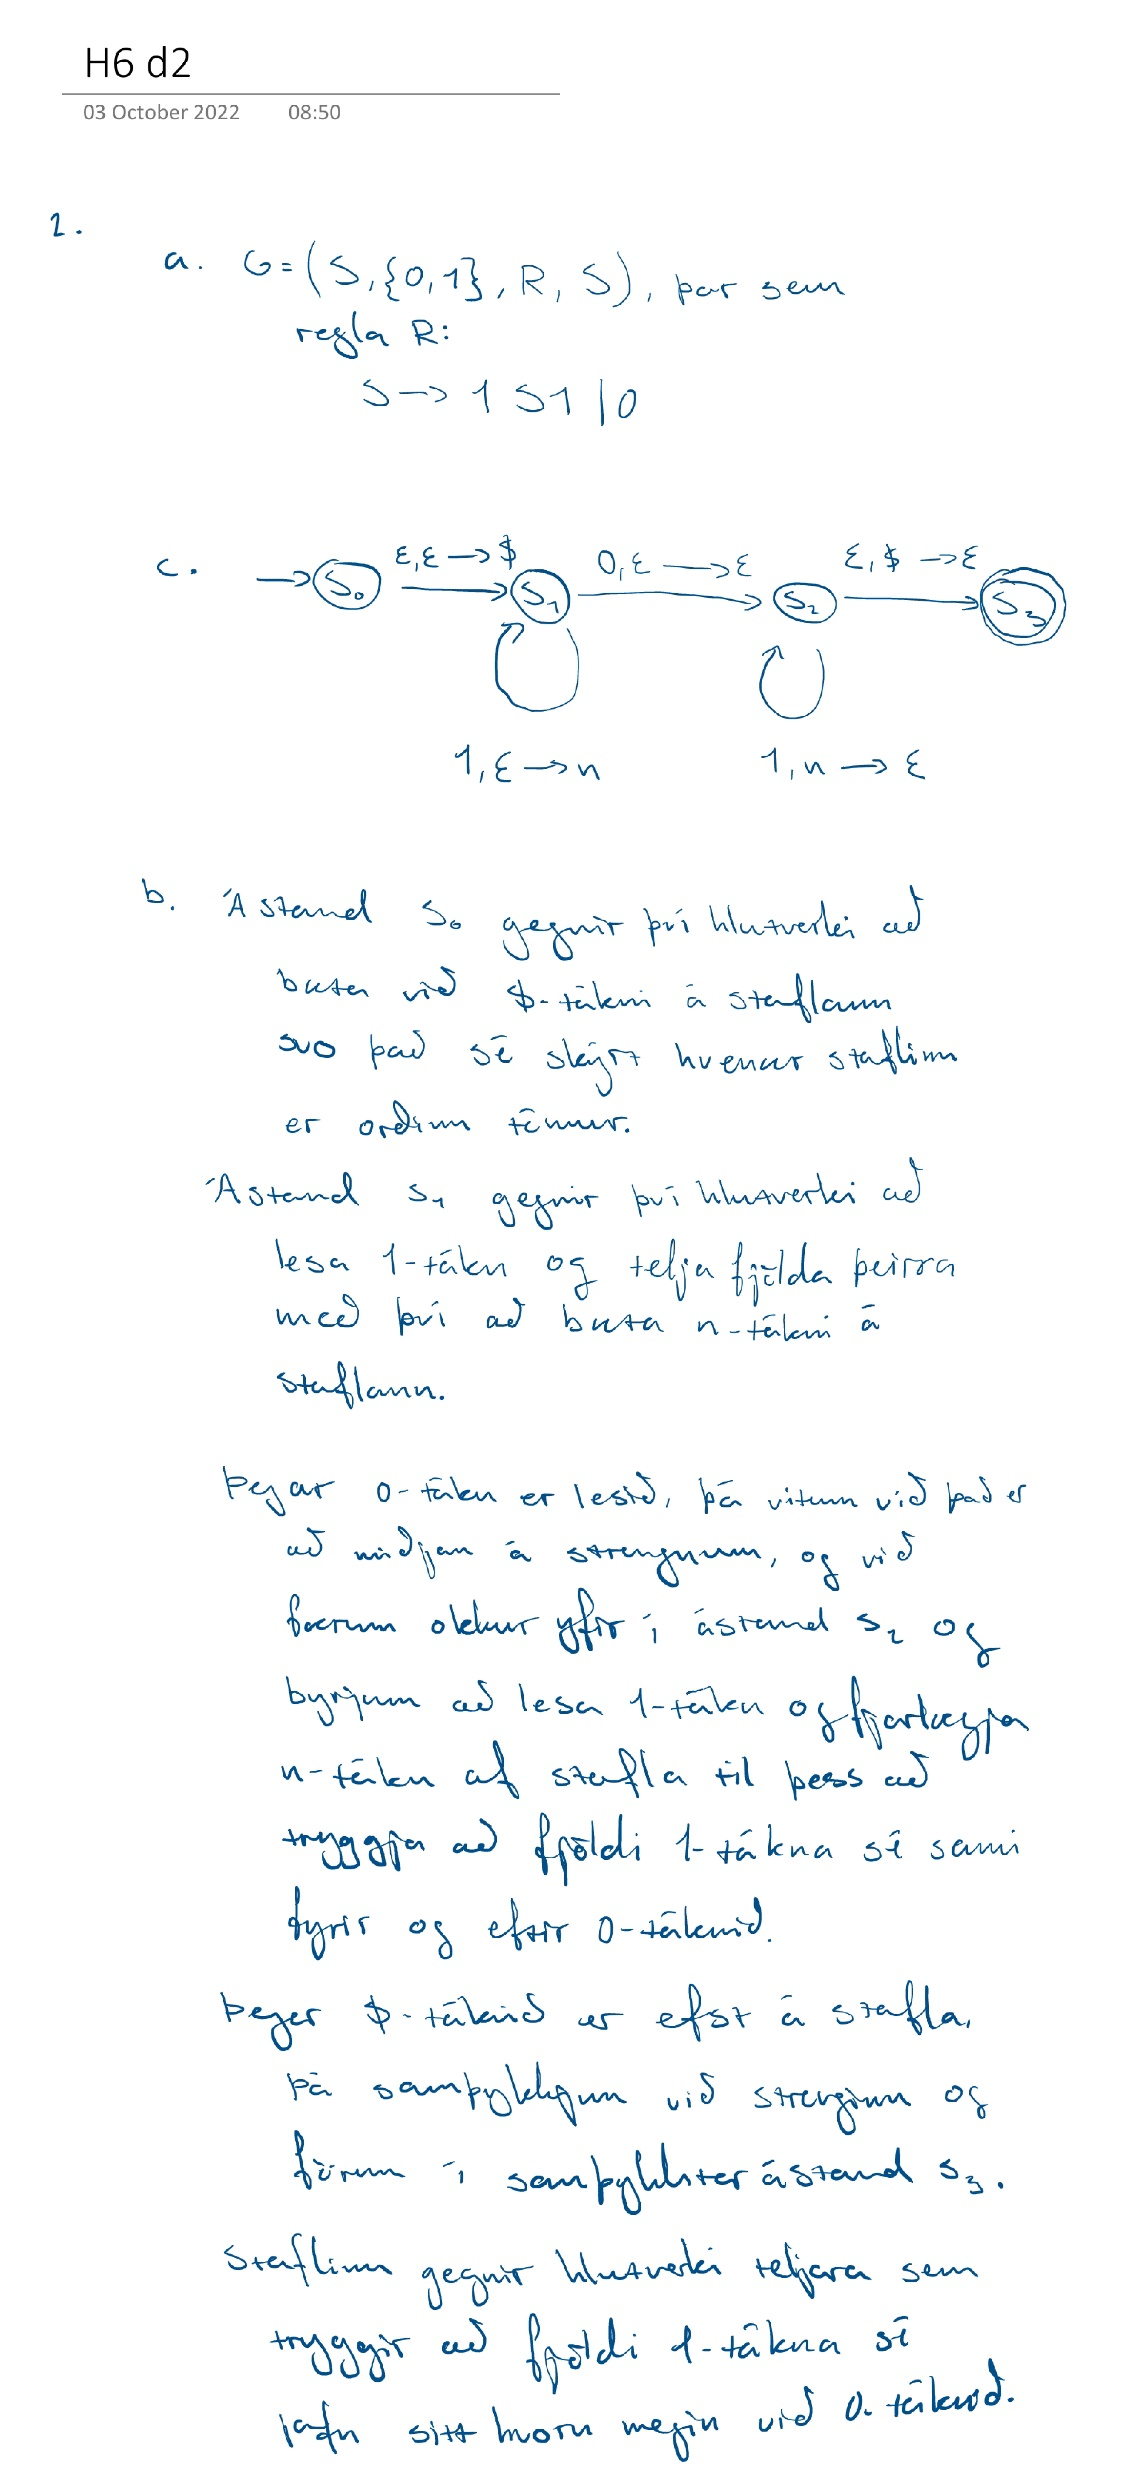 H6 d2
03 October 2022 08:50
2.
a. G=(S,{0,1}, R, S), þar sem
regla R:
S → 1 S 1 | 0
c. → S₀ ε,ε → $ S₁ 0,ε → ε S₂ ε,$ → ε S₃
1,ε → n 1,n → ε
b. Ástand S₀ gegnir því hlutverki að
bæta við $-tákni á staflann
svo það sé skýrt hvenær staflinn
er orðinn tómur.
Ástand S₁ gegnir því hlutverki að
lesa 1-tákn og telja fjölda þeirra
með því að bæta n-tákni á
staflann.
Þegar 0-tákn er lesið, þá vitum við það er
að miðjan á strengnum, og við
færum okkur yfir í ástand S₂ og
byrjum að lesa 1-tákn og fjarlægja
n-tákn af stafla til þess að
tryggja að fjöldi 1-tákna sé sami
fyrir og eftir 0-táknið.
Þegar $-táknið er efst á stafla,
þá samþykkjum við strenginn og
förum í samþykktarástand S₃.
Staflinn gegnir hlutverki teljara sem
tryggir að fjöldi 1-tákna sé
jafn sitt hvoru megin við 0-táknið.